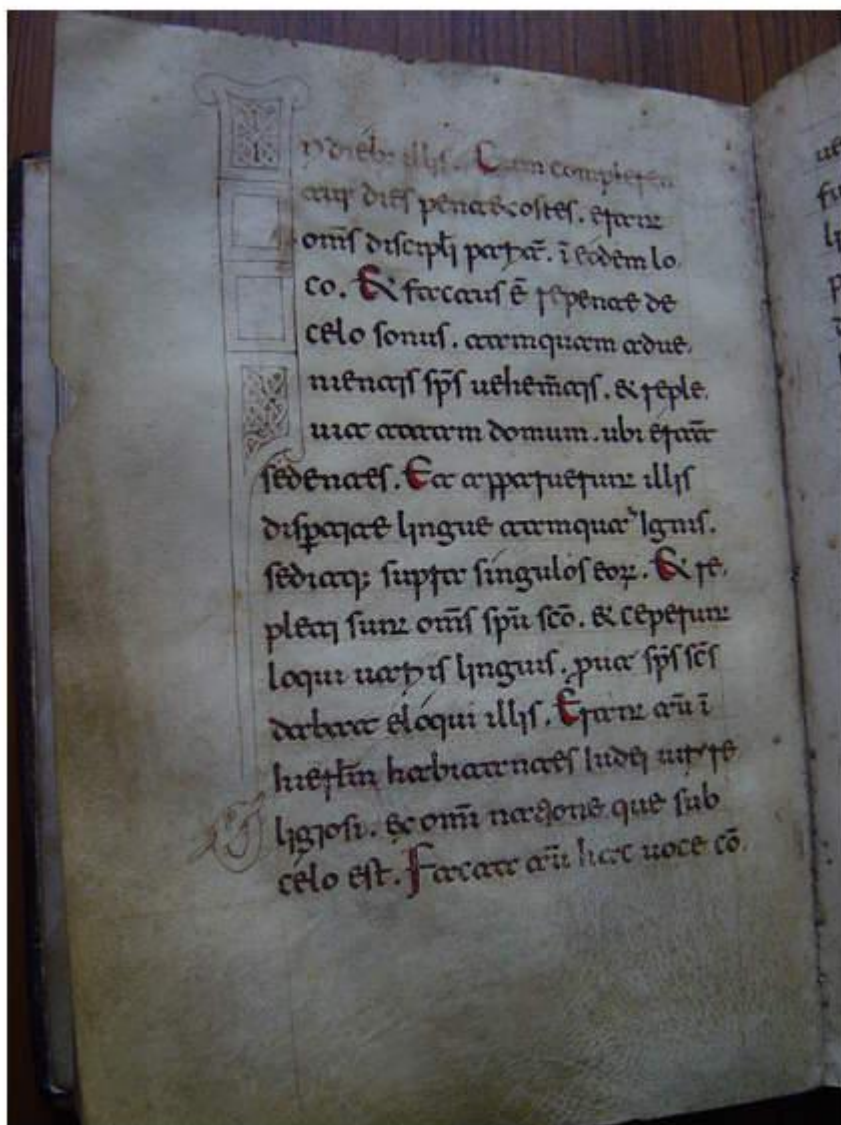 In diebȝ illis. Cum compleren
tur dies pentecostes. erant
om̄s discipl̄i parit̄. ī eodem lo
co. Et factus ē repente de
celo sonus. tamquam adue
nientis sp̄s uehem̄tis. & reple
uit totam domum. ubi erāt
sedentes. Et apparuerunt illis
dispertite lingue tamquā Ignis.
seditq; supra singulos eoꝝ. Et re
pleti sunt om̄s spū scō. & ceperunt
loqui uariis linguis. prout sp̄s sc̄s
dabat eloqui illis. Erant aū ī
hierl̄m habitantes Iudei uiri re
ligiosi. ex omī natione que sub
celo est. Facta aū hac uoce cō